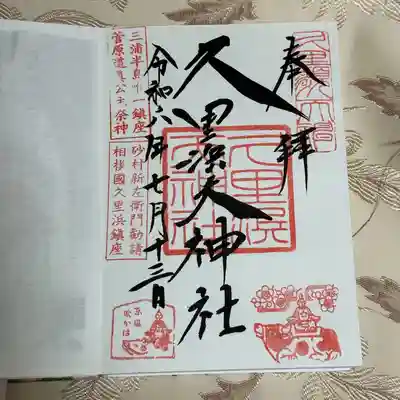 奉拝
久里浜天神社
令和六年七月十三日
三浦半島唯一鎮座
菅原道真公主祭神
砂村新左衛門勧請
相模國久里浜鎮座